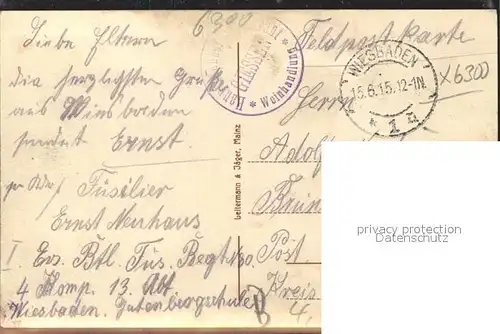 6300
Liebe Eltern
die herzlichsten Grüße
aus Wiesbaden
sendet Ernst.
Füsilier
Ernst Neuhaus
I. Ers. Btl. Füs. Regt 80.
4 Komp. 13. Abt
Wiesbaden. Gutenbergschule
GIESSEN
* Weinhandlung *
Leitermann & Jäger, Mainz
Feldpostkarte
WIESBADEN
15.6.15.12-1N.
* 1 a
x6300
Herrn
Adolf
Post
Kreis
privacy protection
Datenschutz